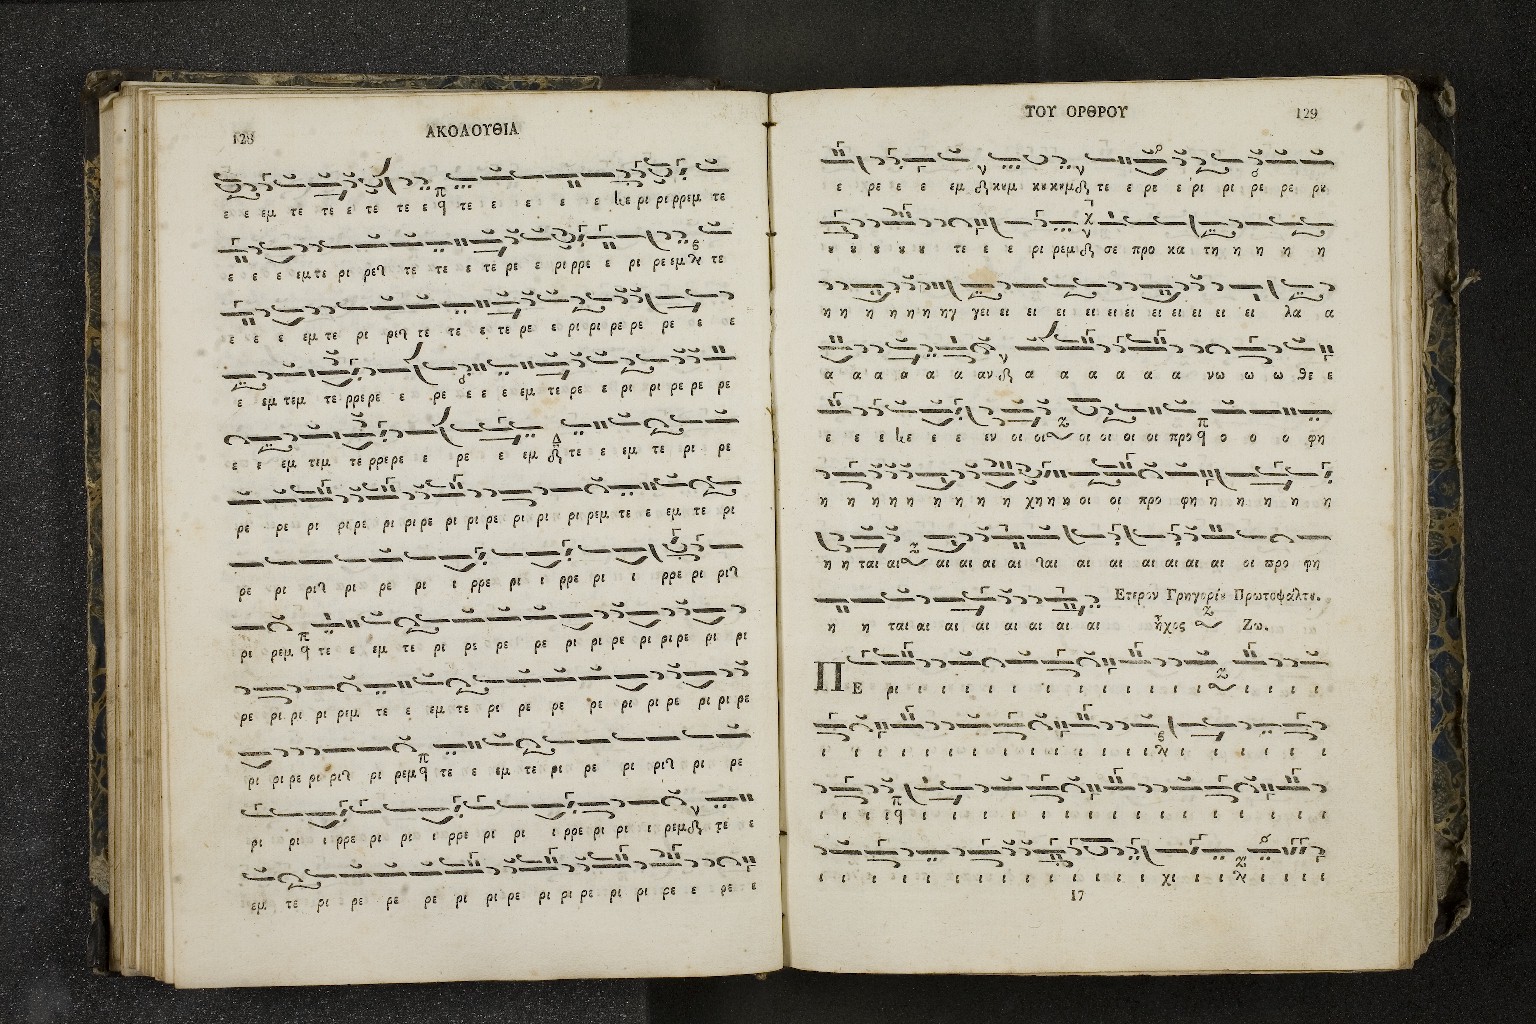 128
ΑΚΟΛΟΥΘΙΑ
ε ε εμ τε τε ε τε τε ε τε ε ε ε ε ε ρι ρι ρρεμ τε
ε ε ε εμ τε ρι ρε τε τε ε τε ρε ε ρι ρρε ε ρι ρε εμ τε
ε ε ε εμ τε ρι ρι τε τε ε τε ρε ε ρι ρι ρε ρε ρε ε ε
ε εμ τεμ τε ρρε ρε ε ρε ε ε ε εμ τε ρε ε ρι ρι ρε ρε ρε
ε ε εμ τεμ τε ρρε ρε ε ρε ε εμ τε ε εμ τε ρι ρε
ρε ρε ρι ρι ρε ρι ρι ρε ρι ρι ρι ρε ρι ρι ρι ρι ρεμ τε ε εμ τε ρι
ρε ρι ρι ρι ρε ρι ι ρρε ρι ι ρρε ρι ι ρρε ρι ρι
ρι ρεμ τε ε εμ τε ρι ρε ρε ρε ρι ρι ρι ρε ρι ρι
ρε ρι ρι ρι ριμ τε ε εμ τε ρι ρε ρε ρε ρι ρι ρε ρι ρι ρε
ρι ρι ρε ρι ρι ρι ρεμ τε ε εμ τε ρι ρε ρι ρι ρι ρε
ρι ρι ι ρρε ρι ρι ι ρρε ρι ρι ι ρρε ρι ρι ι ρεμ τε ε
εμ τε ρι ρε ρε ρε ρι ρι ρε ρι ρι ρε ρι ρι ρε ε ρε ε
ΤΟΥ ΟΡΘΡΟΥ
129
ε ρε ε ε εμ κȣμ κȣ κȣμ τε ε ρε ε ρι ρι ρε ρε ρȣ
ȣ ȣ ȣ ȣ τε ε ε ρι ρεμ σε προ κα τη η η η η
η η η η η ηγ γει ει ει ει ει ει ει ει ει ει ει ει λα α
α α α α α α αν α α α α α α νω ω ω θε ε
ε ε ε ε ε ε εν οι οι οι οι οι οι προ ο ο ο φη
η η η η η η η η χη η η οι οι προ φη η η η η η
η η ται αι αι αι αι αι ται αι αι αι αι αι αι οι προ φη
η η ται αι αι αι αι αι αι αι Ετερον Γρηγορίȣ Πρωτοψάλτȣ.
ἦχος Ζω.
ΠΕ ρι ι ι ι ι ι ι ι ι ι ι ι ι ι ι
ι ι ι ι ι ι ι ι ι ι ι ι ι ι ι ι
ι ι ι ι ι ι ι ι ι ι ι ι ι ι ι ι
ι ι ι ι ι ι ι ι ι ι ι ι χι ι ι ι ι ι
17